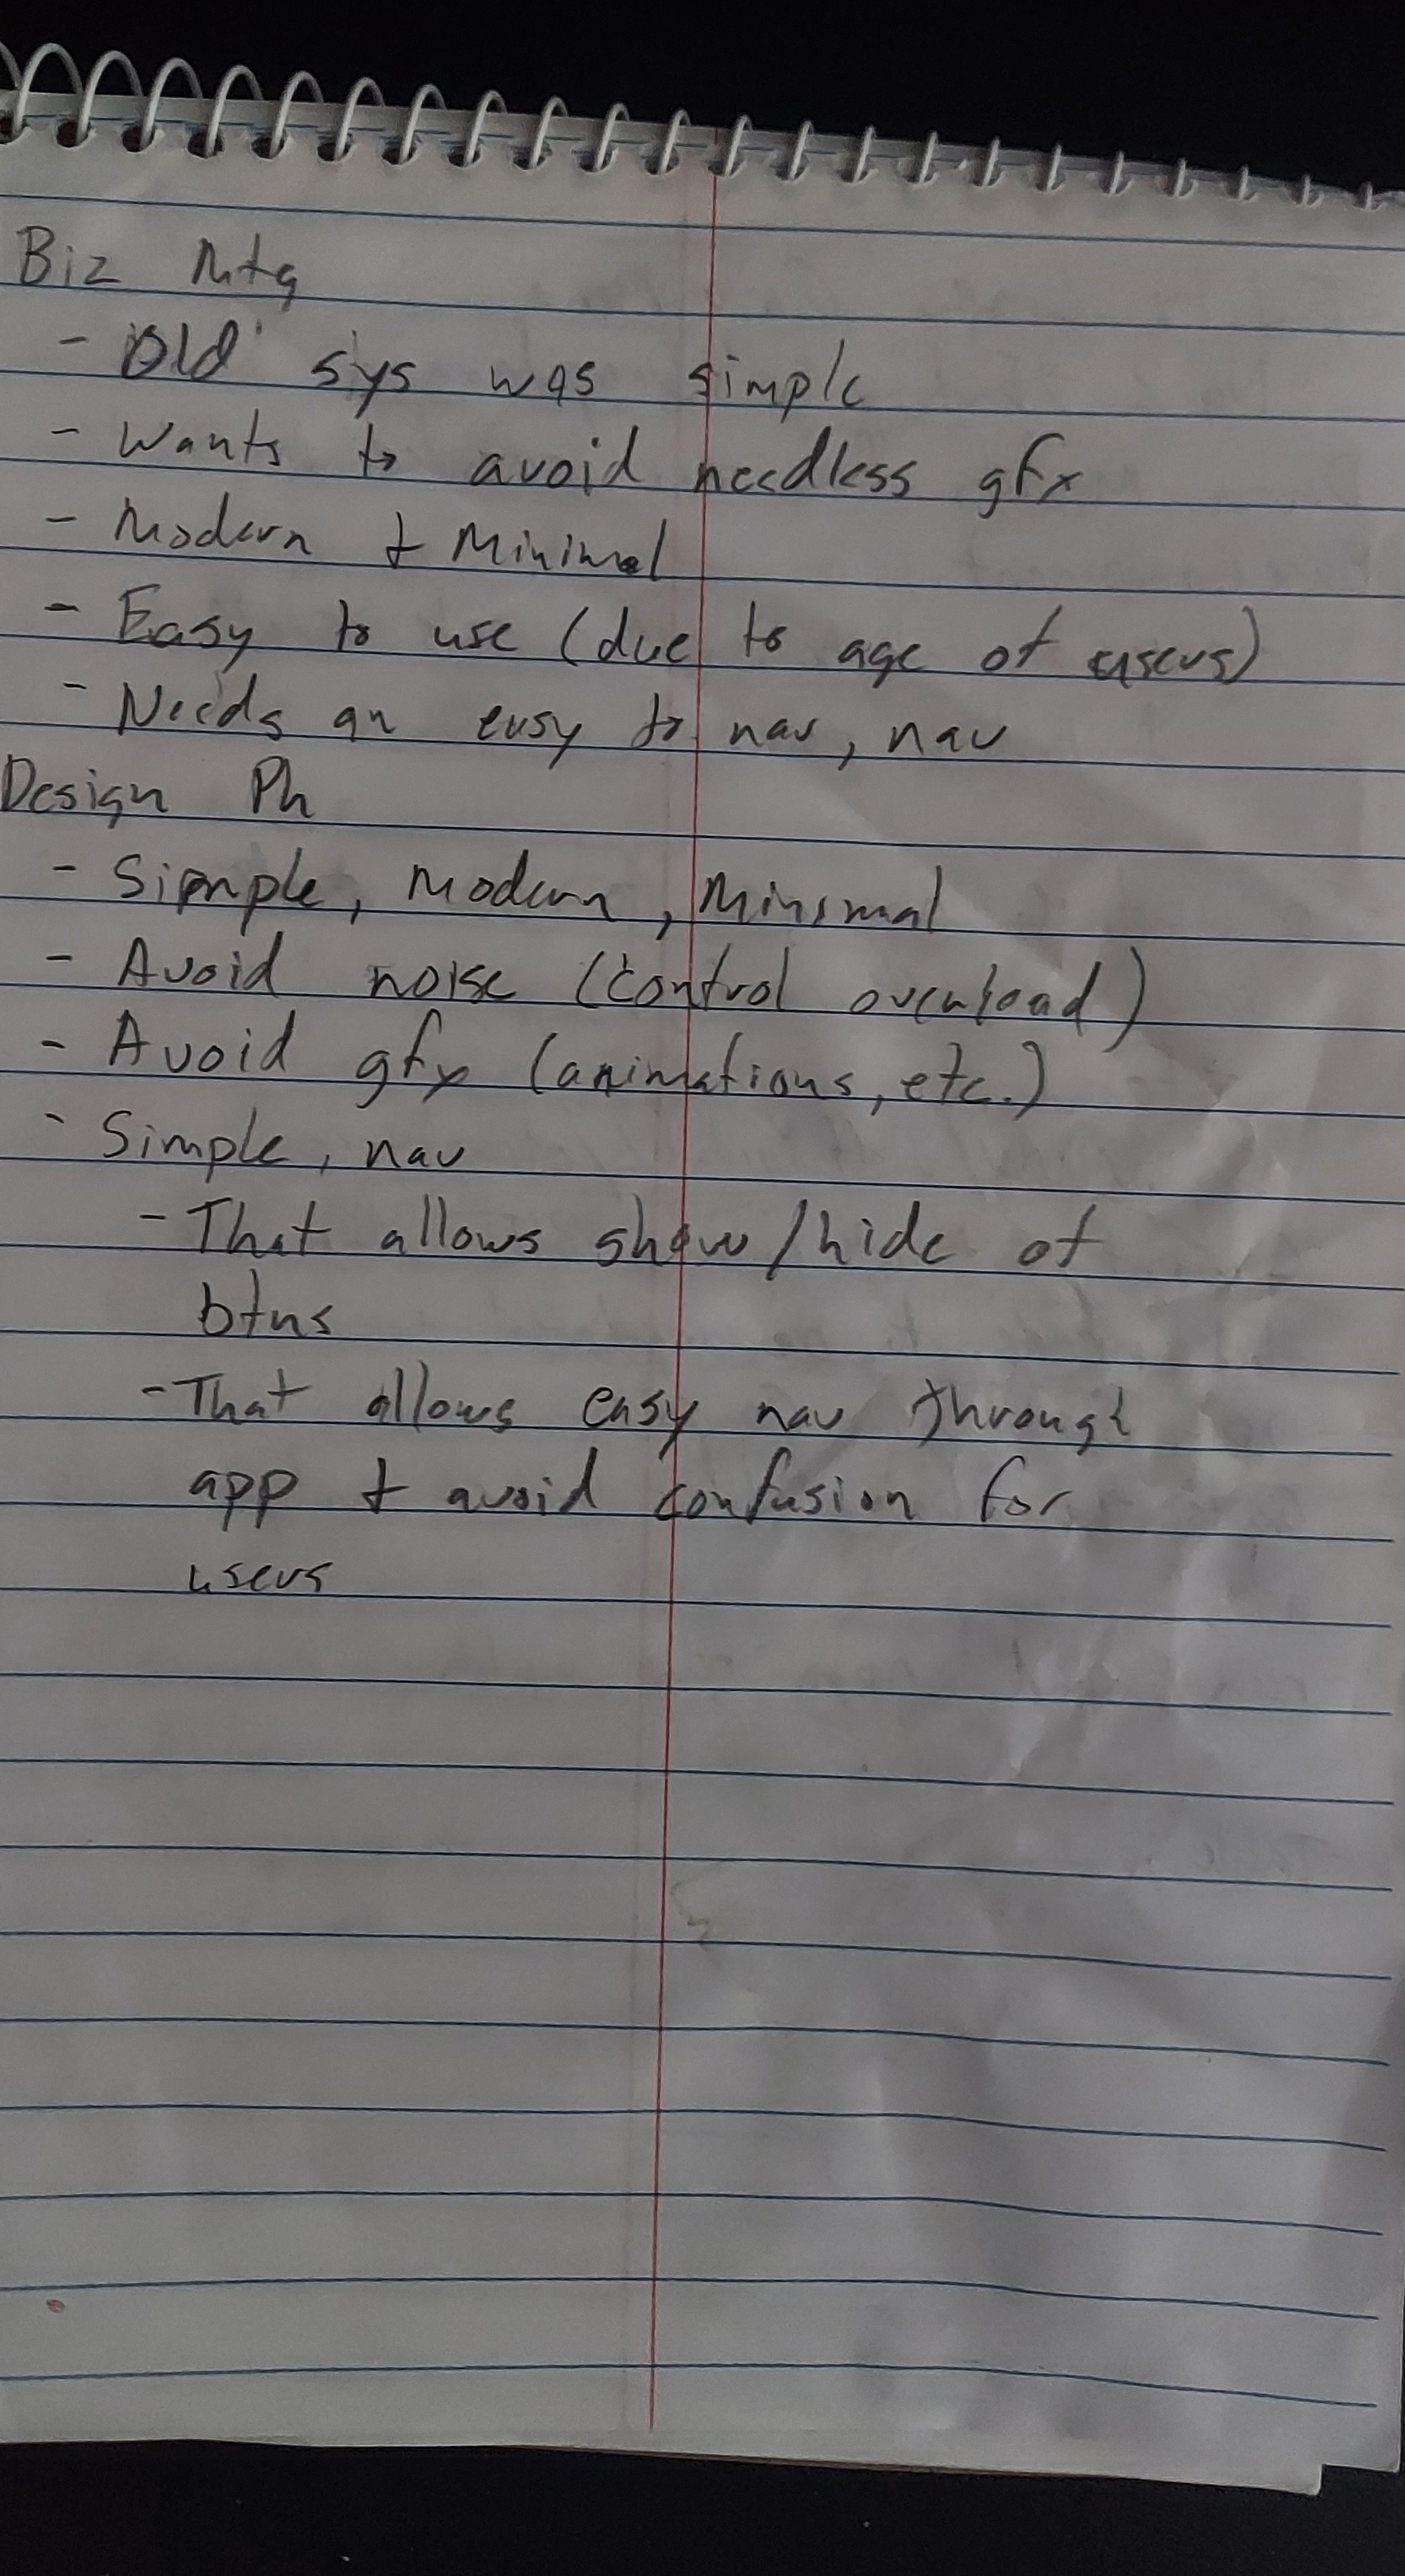 Biz Mtg
- Old sys was simple
- Wants to avoid needless gfx
- Modern + Minimal
- Easy to use (due to age of users)
- Needs an easy to nav, nav
Design Ph
- Simple, Modern, Minimal
- Avoid noise (control overload)
- Avoid gfx (animations, etc.)
- Simple, nav
- That allows show/hide of
btns
- That allows easy nav through
app + avoid confusion for
users